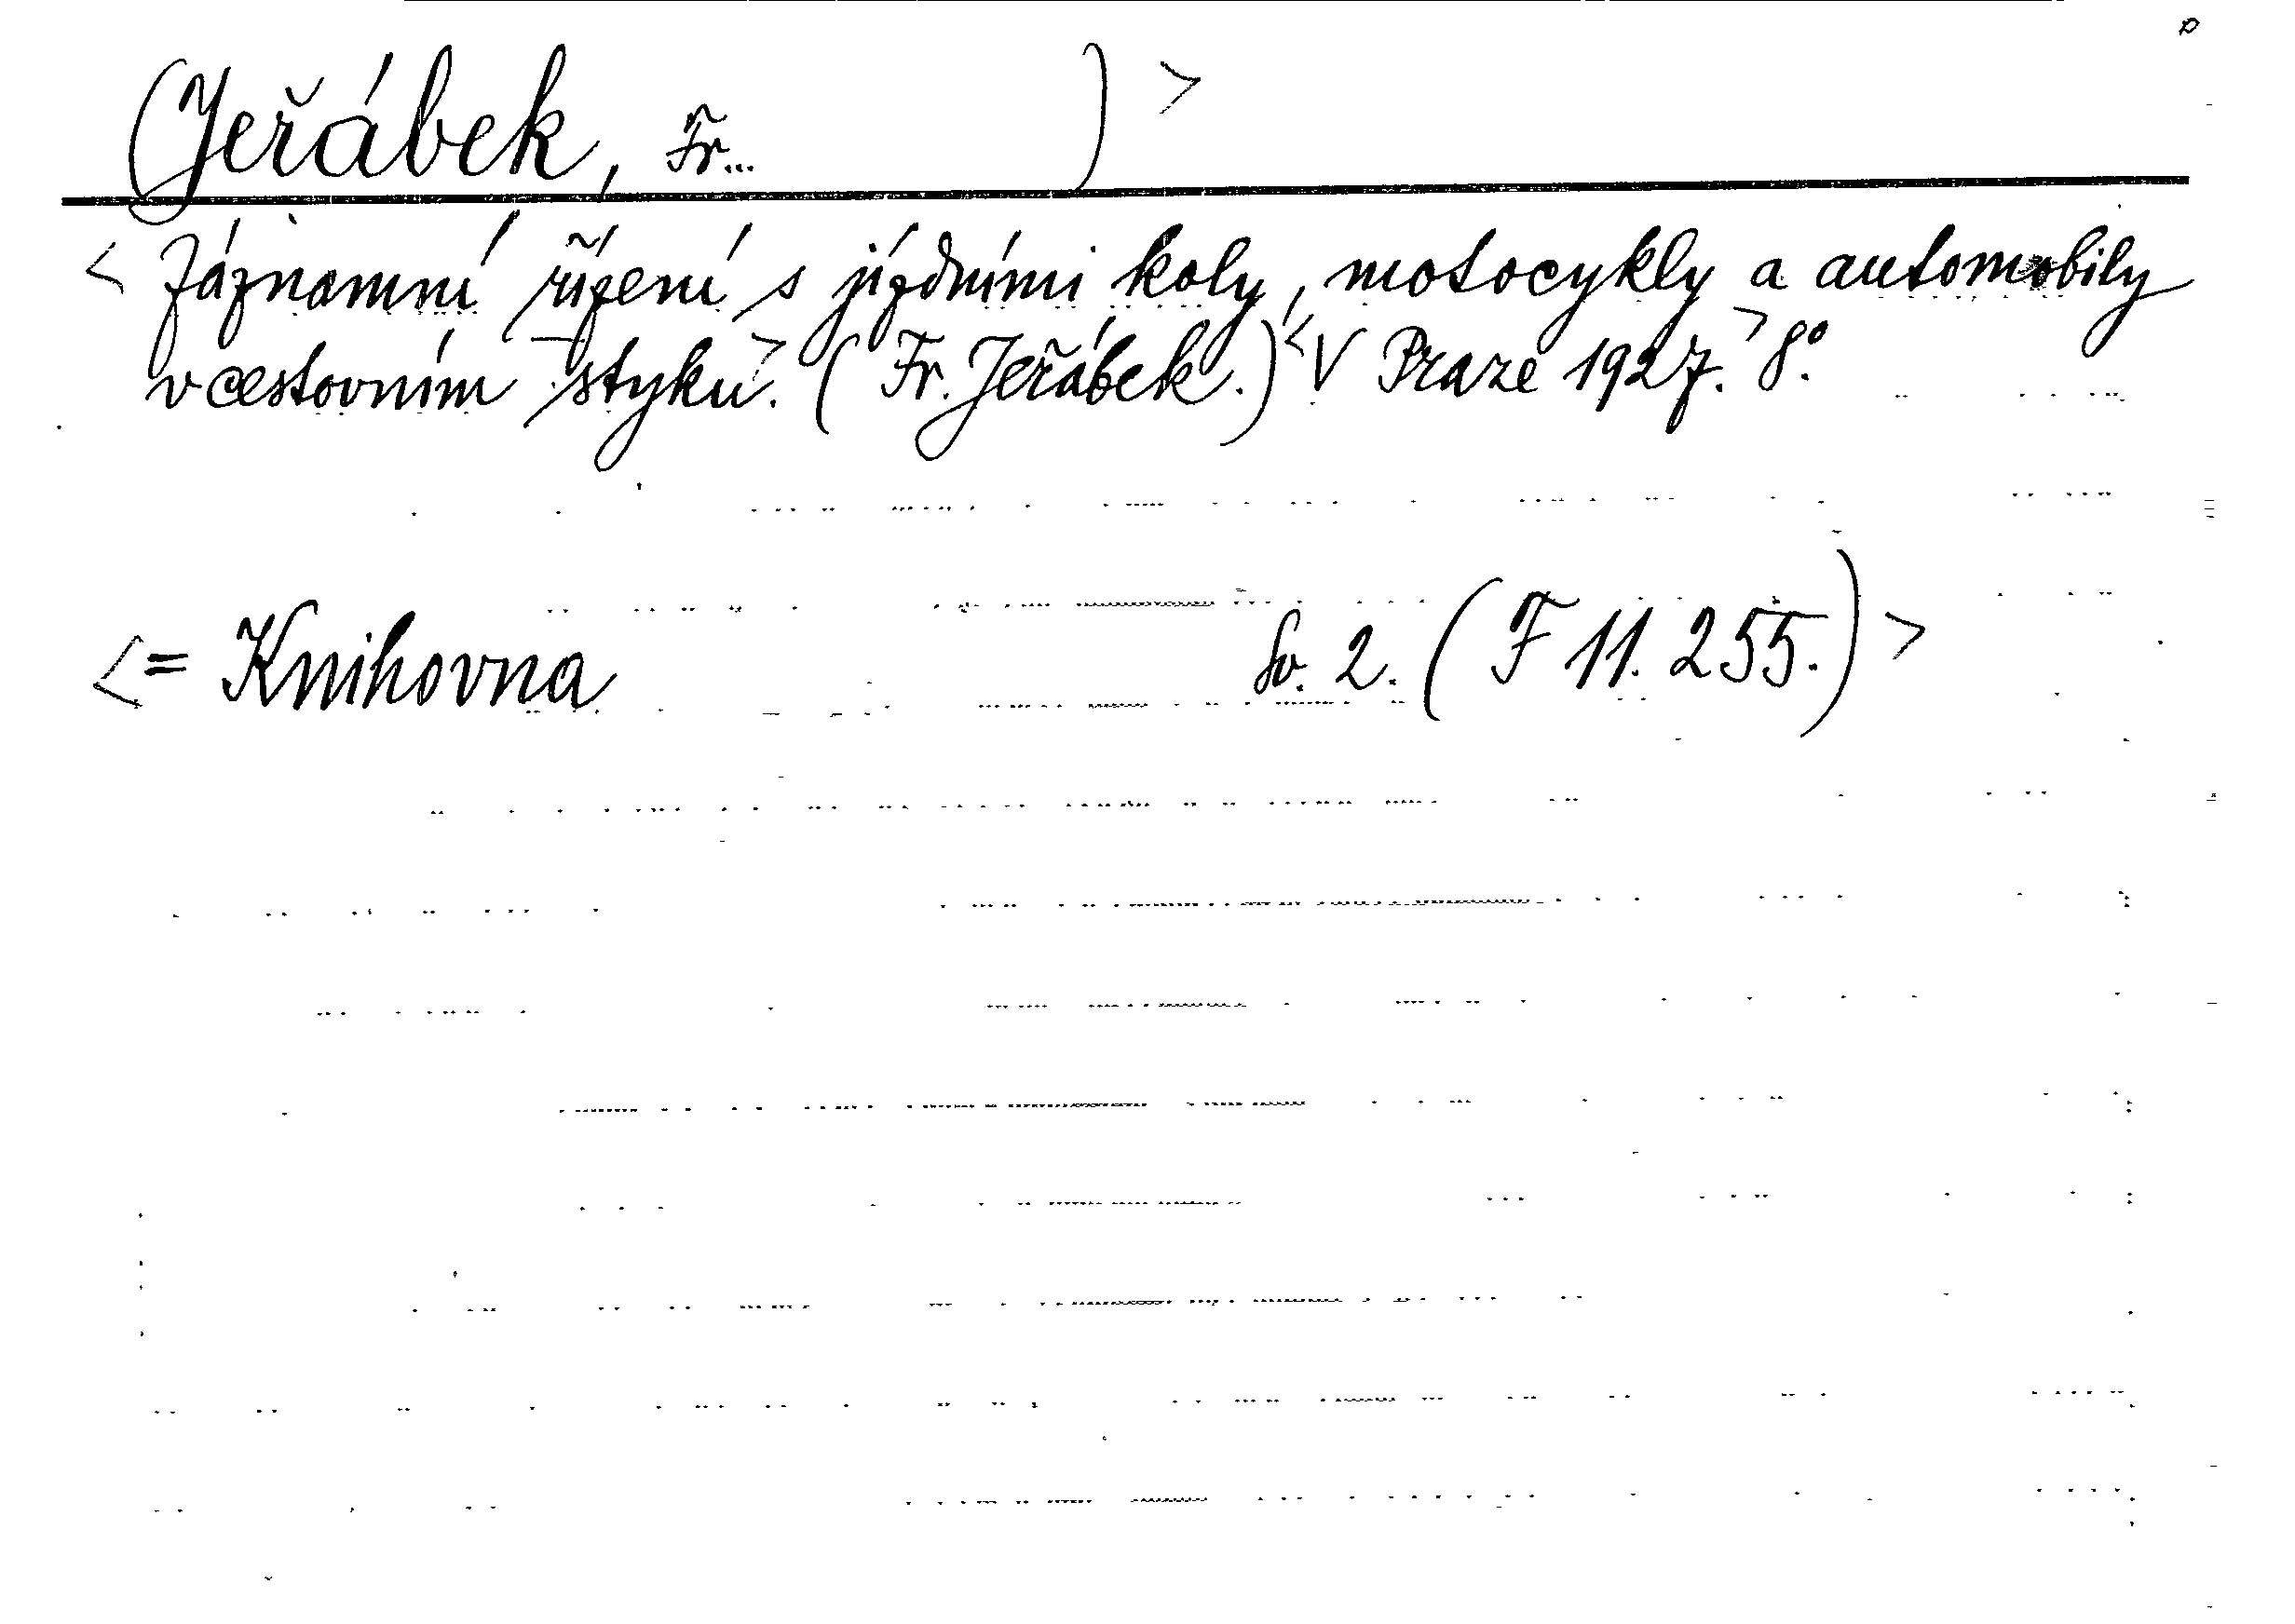 (Jeřábek, Fr... ) >
< Záznamní řízení s jízdními koly, motocykly a automobily
v cestovním styku. > (Fr. Jeřábek.) < V Praze 1927. > 8°.
< = Knihovna Sv. 2. (F 11. 255.) >